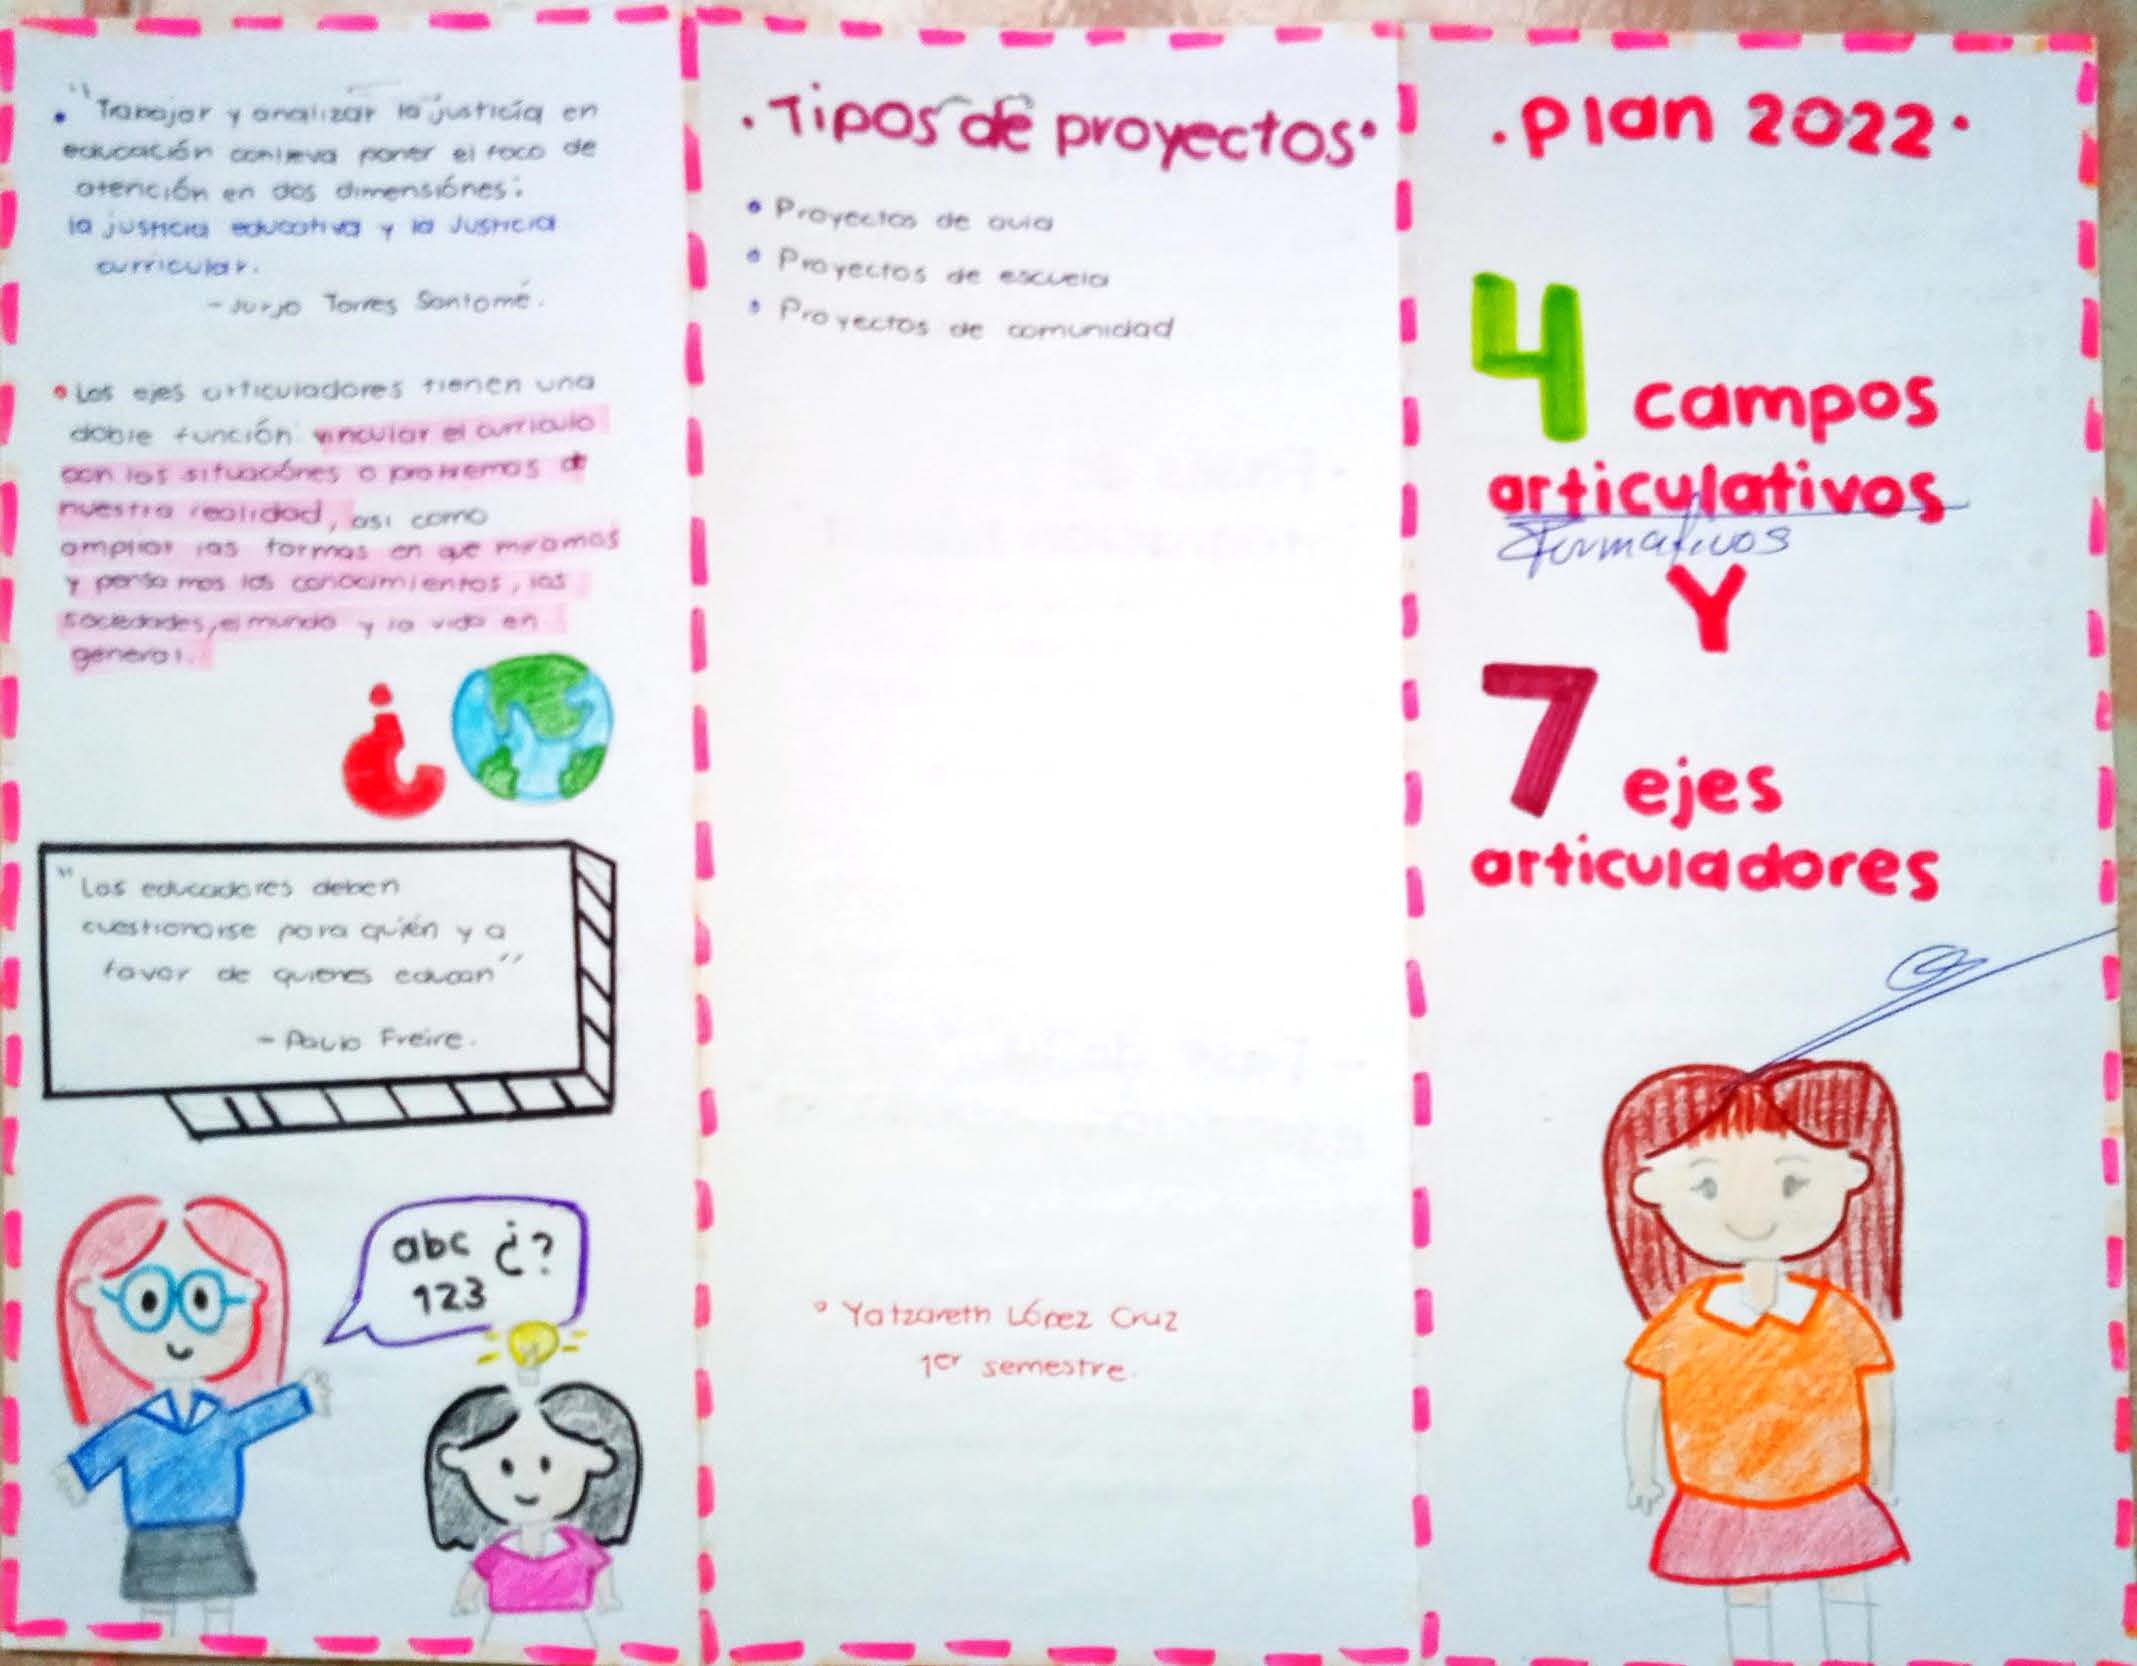 • "Trabajar y analizár la justicia en
educación conlleva poner el foco de
atención en dos dimensiónes:
la justicia educativa y la Justicia
curricular.
- Jurjo Torres Santomé.
• Los ejes articuladores tienen una
doble función vincular el curriculo
con las situaciónes o problemas de
nuestra realidad, asi como
ampliar las formas en que miramos
y pensamos los conocimientos, las
sociedades, el mundo y la vida en
general.
¿
"Los educadores deben
cuestionarse para quién y a
favor de quienes educan"
- Paulo Freire.
abc ¿?
123
• Tipos de proyectos •
• Proyectos de aula
• Proyectos de escuela
• Proyectos de comunidad
° Yatzareth López Cruz
1er semestre.
• Plan 2022 •
4 campos
articulativos
Formativos
Y
7 ejes
articuladores